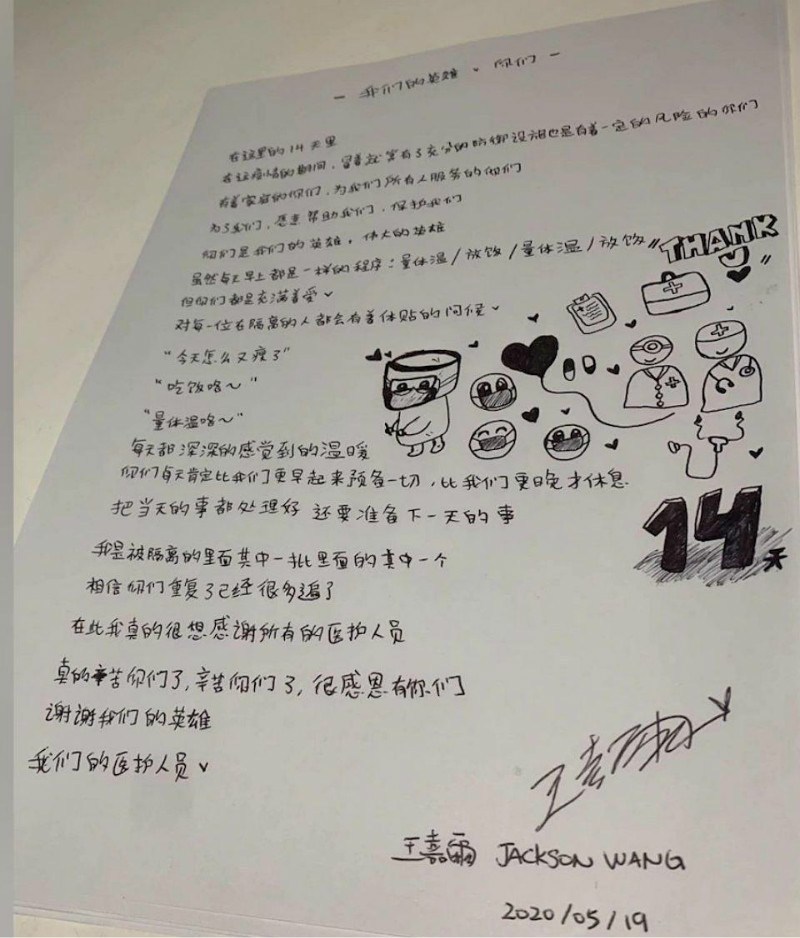 — 我们的英雄、你们 —
在这里的14天里
在这疫情的期间，冒着就算有了充分的防御设施也是有着一定的风险的你们
有着家庭的你们，为我们所有人服务的你们
为了我们，愿意帮助我们，保护我们
你们是我们的英雄，伟大的英雄
虽然每天早上都是一样的程序：量体温/放饭/量体温/放饭
但你们都是充满着爱
对每一位在隔离的人都会有着体贴的问候
"今天怎么又瘦了"
"吃饭咯~"
"量体温咯~"
每天都深深的感觉到的温暖
你们每天肯定比我们更早起来预备一切，比我们更晚才休息
把当天的事都处理好 还要准备下一天的事
我是被隔离的里面其中一批里面的其中一个
相信你们重复了已经很多遍了
在此我真的很想感谢所有的医护人员
真的辛苦你们了，辛苦你们了，很感恩有你们
谢谢我们的英雄
我们的医护人员
"THANK U"
14天
王嘉爾
王嘉爾 JACKSON WANG
2020/05/19